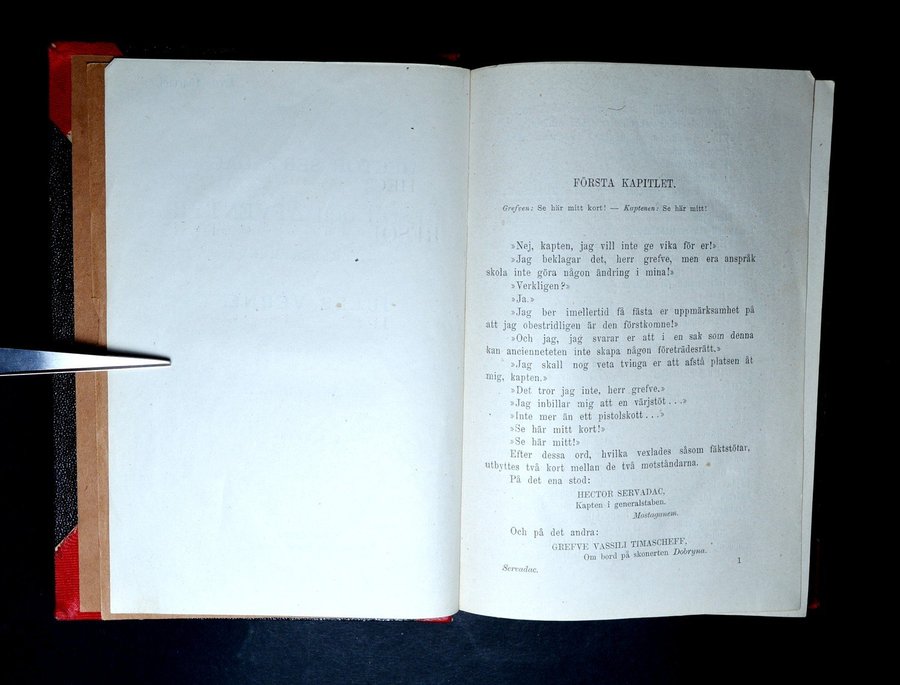 FÖRSTA KAPITLET.
Grefven: Se här mitt kort! — Kaptenen: Se här mitt!
»Nej, kapten, jag vill inte ge vika för er!»
»Jag beklagar det, herr grefve, men era anspråk
skola inte göra någon ändring i mina!»
»Verkligen?»
»Ja.»
»Jag ber imellertid få fästa er uppmärksamhet på
att jag obestridligen är den förstkomne!»
»Och jag, jag svarar er att i en sak som denna
kan ancienneteten inte skapa någon företrädesrätt.»
»Jag skall nog veta tvinga er att afstå platsen åt
mig, kapten.»
»Det tror jag inte, herr grefve.»
»Jag inbillar mig att en värjstöt...»
»Inte mer än ett pistolskott...»
»Se här mitt kort!»
»Se här mitt!»
Efter dessa ord, hvilka vexlades såsom fäktstötar,
utbyttes två kort mellan de två motståndarna.
På det ena stod:
HECTOR SERVADAC,
Kapten i generalstaben.
Mostaganem.
Och på det andra:
GREFVE VASSILI TIMASCHEFF,
Om bord på skonerten Dobryna.
Servadac.
1